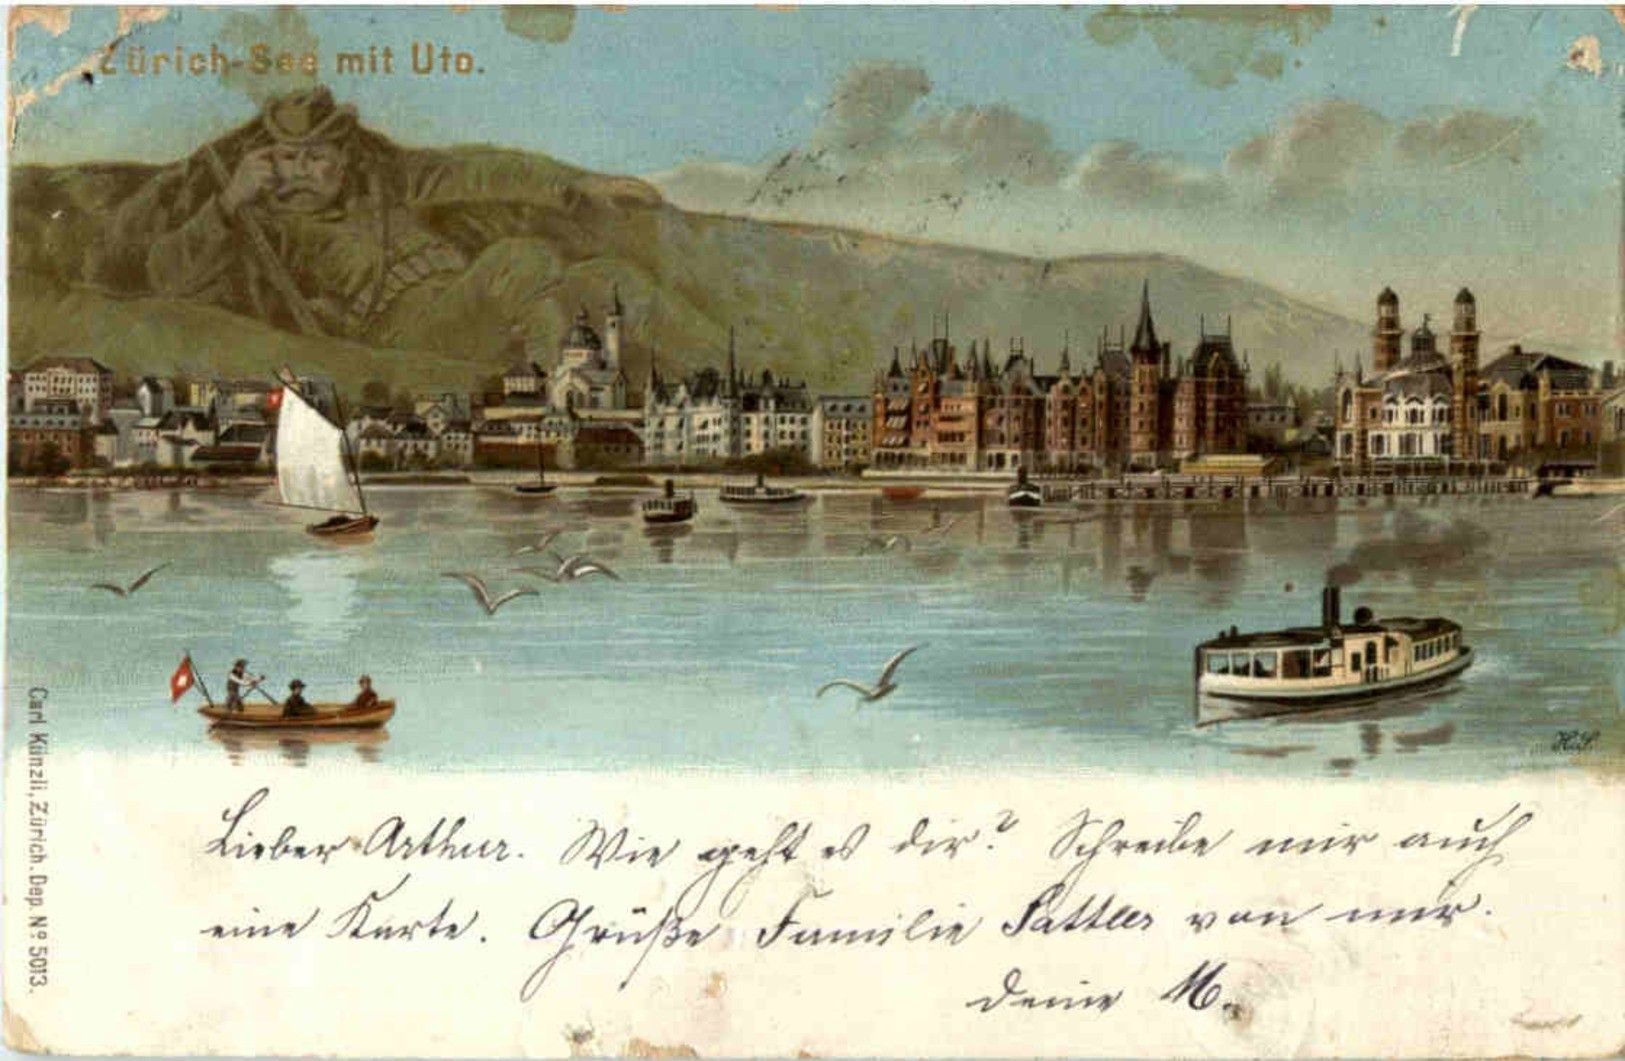 Zürich-See mit Uto.
Lieber Arthur. Wie geht es dir? Schreibe mir auch
eine Karte. Grüße Familie Sattler von mir.
deine M.
Carl Künzli, Zürich. Dep. Nº 5013.